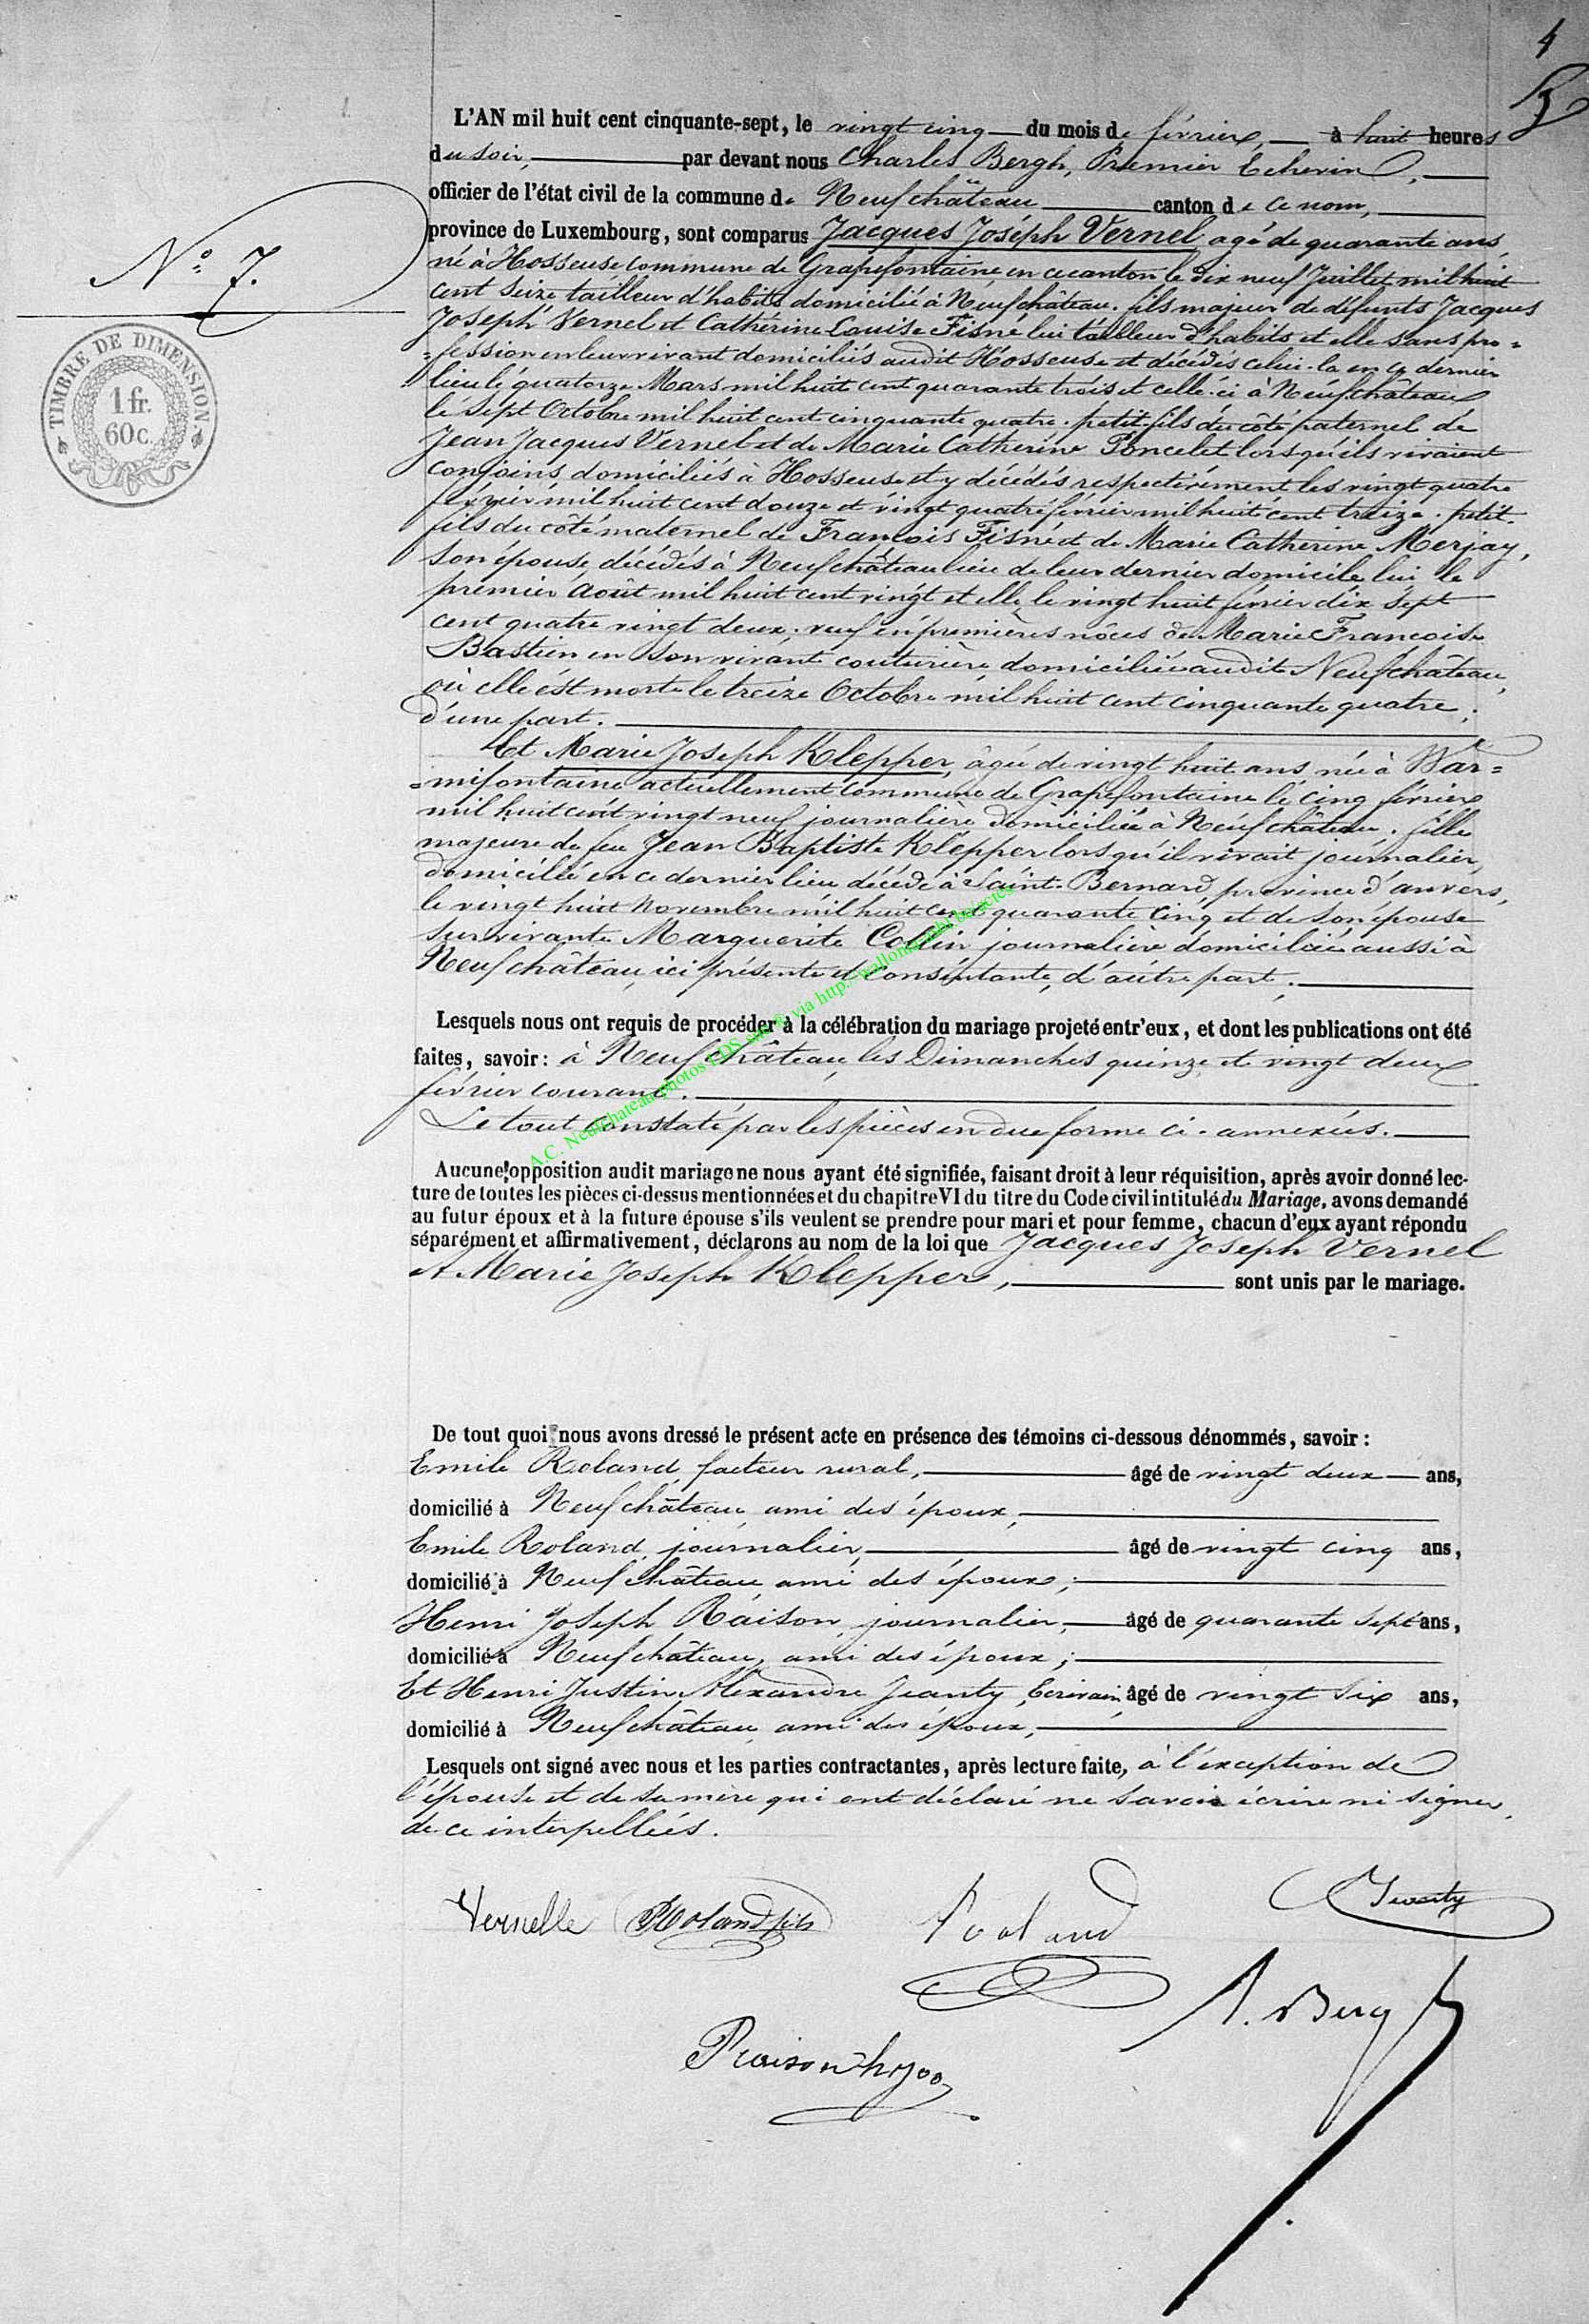 4
L'AN mil huit cent cinquante-sept, le vingt cinq du mois de février, à huit heures
du soir, par devant nous Charles Bergh, Premier Echevin,
officier de l'état civil de la commune de Neufchâteau canton de ce nom,
province de Luxembourg, sont comparus Jacques Joséph Vernel agé de quarante ans,
né à Hosseuse commune de Grapefontaine, en ce canton le dix neuf Juillet mil huit
cent seize tailleur d'habits domicilié à Neufchâteau. fils majeur de défunts Jacques
Joseph Vernel et Cathérine Louise Fisne lui tailleur d'habits et elle sans pro=
=fession en leur vivant domiciliés audit Hosseuse et décédés celui-là en ce dernier
lieu le quatorze Mars mil huit cent quarante trois et celle-ci à Neufchâteau
le sept Octobre mil huit cent cinquante quatre. petit-fils du côté paternel de
Jean Jacques Vernel et de Marie Catherine Poncelet lorsqu'ils vivaient
conjoins, domiciliés à Hosseuse et y décédés respectivement les vingt quatre
février mil huit cent douze et vingt quatre février mil huit cent treize. petit-
fils du côté maternel de Francois Fisné et de Marie Catherine Merjay,
son épouse, décédés à Neufchâteau lieu de leur dernier domicile lui le
premier Août mil huit cent vingt et elle le vingt huit février dix sept
cent quatre vingt deux; veuf en premières nôces de Marie Francoise
Bastien en son vivant couturière, domiciliée audit Neufchâteau,
où elle est morte le treize Octobre mil huit cent cinquante quatre;
d'une part.
Et Marie Joseph Klepper, âgée de vingt huit ans née à War=
=mifontaine actuellement commune de Grapefontaine le cinq février
mil huit cent vingt neuf journalière domiciliée à Neufchâteau. fille
majeure de feu Jean Baptiste Klepper lorsqu'il vivait journalier,
domicilié en ce dernier lieu décédé à Saint-Bernard, province d'anvers,
le vingt huit Novembre mil huit cent quarante cinq et de son épouse
survivante Marguerite Collin journalière domiciliée aussi à
Neufchâteau, ici présente et consentante, d'autre part;
Lesquels nous ont requis de procéder à la célébration du mariage projeté entr'eux, et dont les publications ont été
faites, savoir: à Neufchâteau, les Dimanches quinze et vingt deux
février courant.
Le tout constaté par les pièces en due forme ci-annexées.
A.C. Neufchateau photos
Aucune opposition audit mariage ne nous ayant été signifiée, faisant droit à leur réquisition, après avoir donné lec-
ture de toutes les pièces ci-dessus mentionnées et du chapitre VI du titre du Code civil intitulé du Mariage, avons demandé
au futur époux et à la future épouse s'ils veulent se prendre pour mari et pour femme, chacun d'eux ayant répondu
séparément et affirmativement, déclarons au nom de la loi que Jacques Joseph Vernel
et Marie Joseph Klepper, sont unis par le mariage.
De tout quoi nous avons dressé le présent acte en présence des témoins ci-dessous dénommés, savoir:
Emile Roland, facteur rural, âgé de vingt deux ans,
domicilié à Neufchâteau ami des époux,
Emile Roland, journalier, âgé de vingt cinq ans,
domicilié à Neufchâteau ami des époux;
Henri Joseph Raison, journalier, âgé de quarante sept ans,
domicilié à Neufchâteau, ami des époux;
Et Henri Justin Alexandre Jeanty, Ecrivain, âgé de vingt six ans,
domicilié à Neufchâteau ami des époux,
Lesquels ont signé avec nous et les parties contractantes, après lecture faite, à l'exception de
l'épouse et de sa mère qui ont déclaré ne savoir écrire ni signer,
de ce interpellées.
Vernelle Roland fils Roland Jeanty
Bergh
Raison
N.º 7.
TIMBRE DE DIMENSION
1 fr.
60 c.